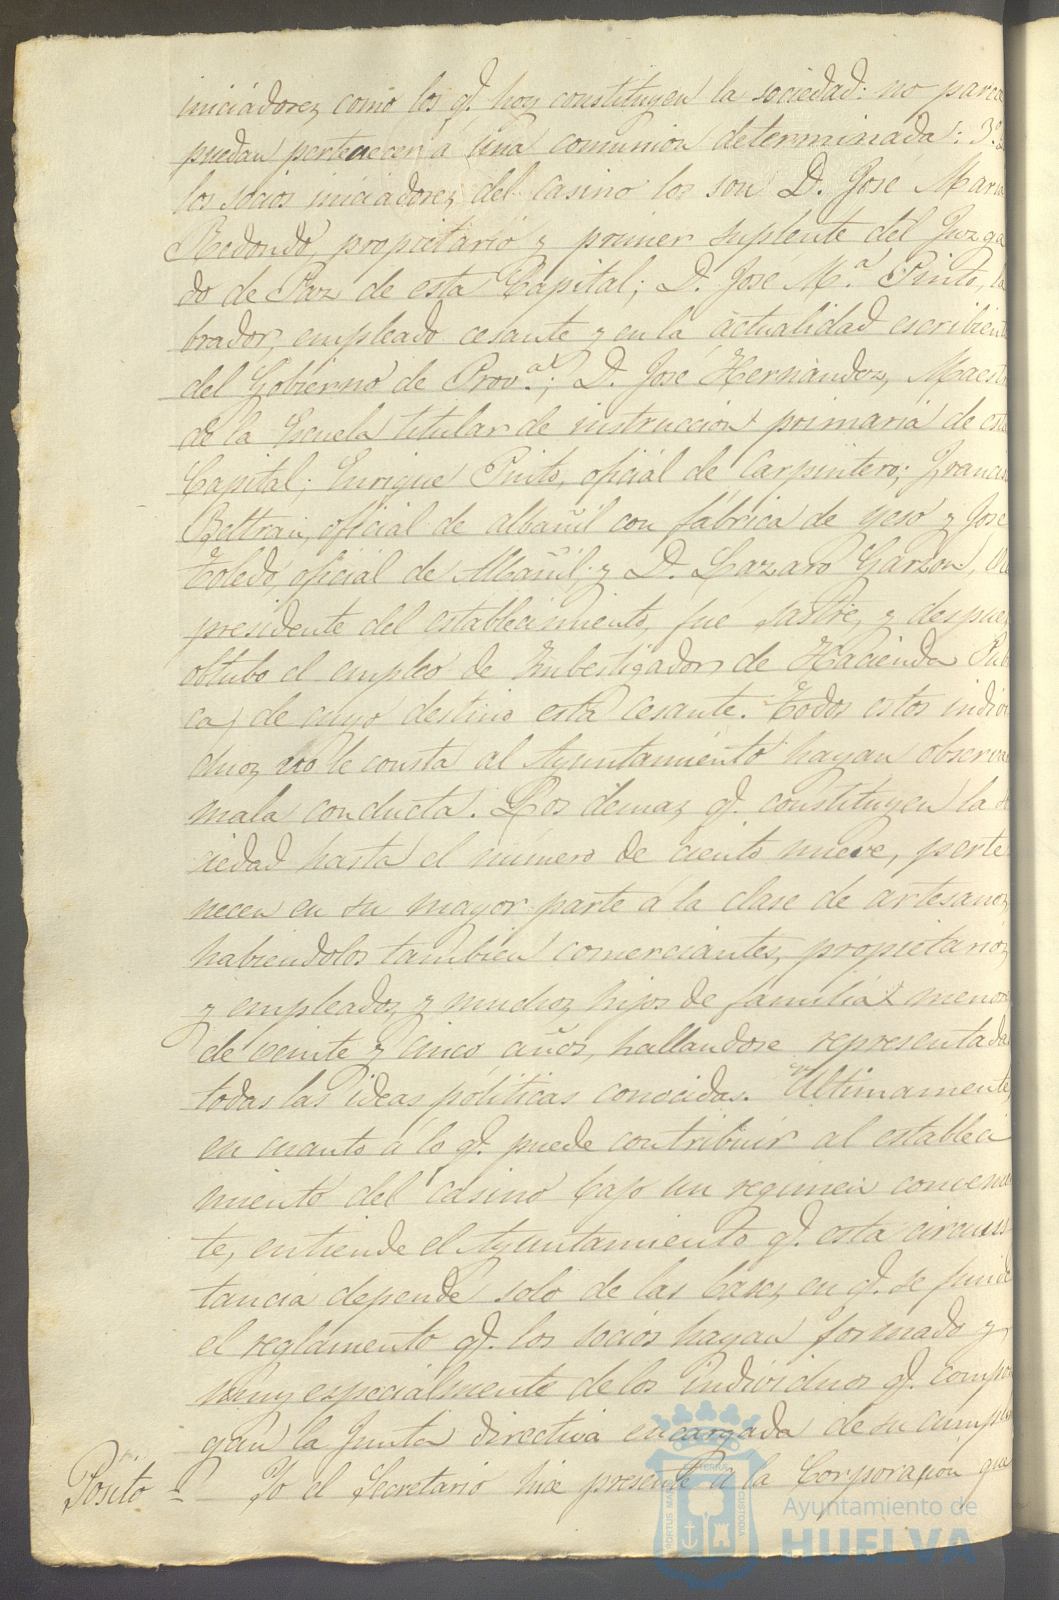 iniciadores, como los q.e hoy constituyen la sociedad: no parece
puedan pertenecer á una comunion determinada: 3.º
los socios iniciadores del casino los son D. José Maria
Redondo, propietario y primer suplente del Juzga
do de Paz de esta Capital; D. José M.ª Pinto, la
brador, empleado cesante y en la actualidad escribiente
del Gobierno de Prov.al; D. José Hernandez, Maestro
de la Escuela titular de instruccion primaria de esta
Capital; Enrique Pinto, oficial de Carpintero; Francisco
Beltran, oficial de albañil con fábrica de yeso y José
Toledo oficial de Albañil; y D. Lazaro Garzon, Vice
presidente del establecimiento, fué sastre, y despues
obtubo el empleo de Imbestigador de Hacienda Publi
ca, de cuyo destino está cesante. Todos estos indivi
duos, no le consta al Ayuntamiento hayan observado
mala conducta. Los demas q.e constituyen la so
ciedad hasta el número de ciento nueve, perte
necen en su mayor parte á la clase de artesanos,
habiendolos tambien comerciantes, propietarios,
y empleados, y muchos hijos de familia menores
de veinte y cinco años, hallandose representadas
todas las ideas politicas conocidas. Ultimamente,
en cuanto á lo q.e puede contribuir al estableci
miento del casino bajo un regimen convenien
te, entiende el Ayuntamiento q.e esta circuns
tancia depende solo de las bases en q.e se funde
el reglamento q.e los socios hayan formado y
muy especialmente de los individuos q.e compon
gan la Junta directiva encargada de su cumpli
Pósito = Yo el Secretario hice presente á la Corporacion que
PORTUS MARIS ET TERRAE CUSTODIA
Ayuntamiento de
HUELVA